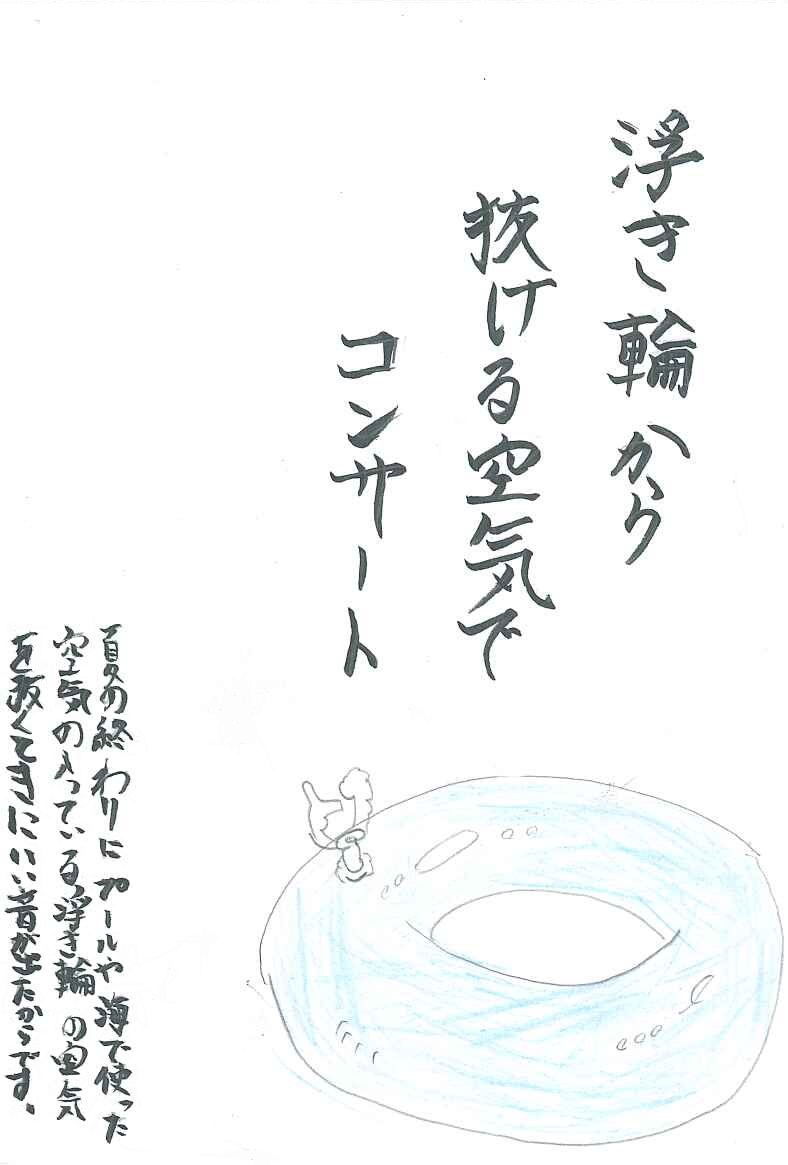 浮き輪から
抜ける空気で
コンサート
夏の終わりにプールや海で使った
空気の入っている浮き輪の空気
を抜くときにいい音が出たからです。